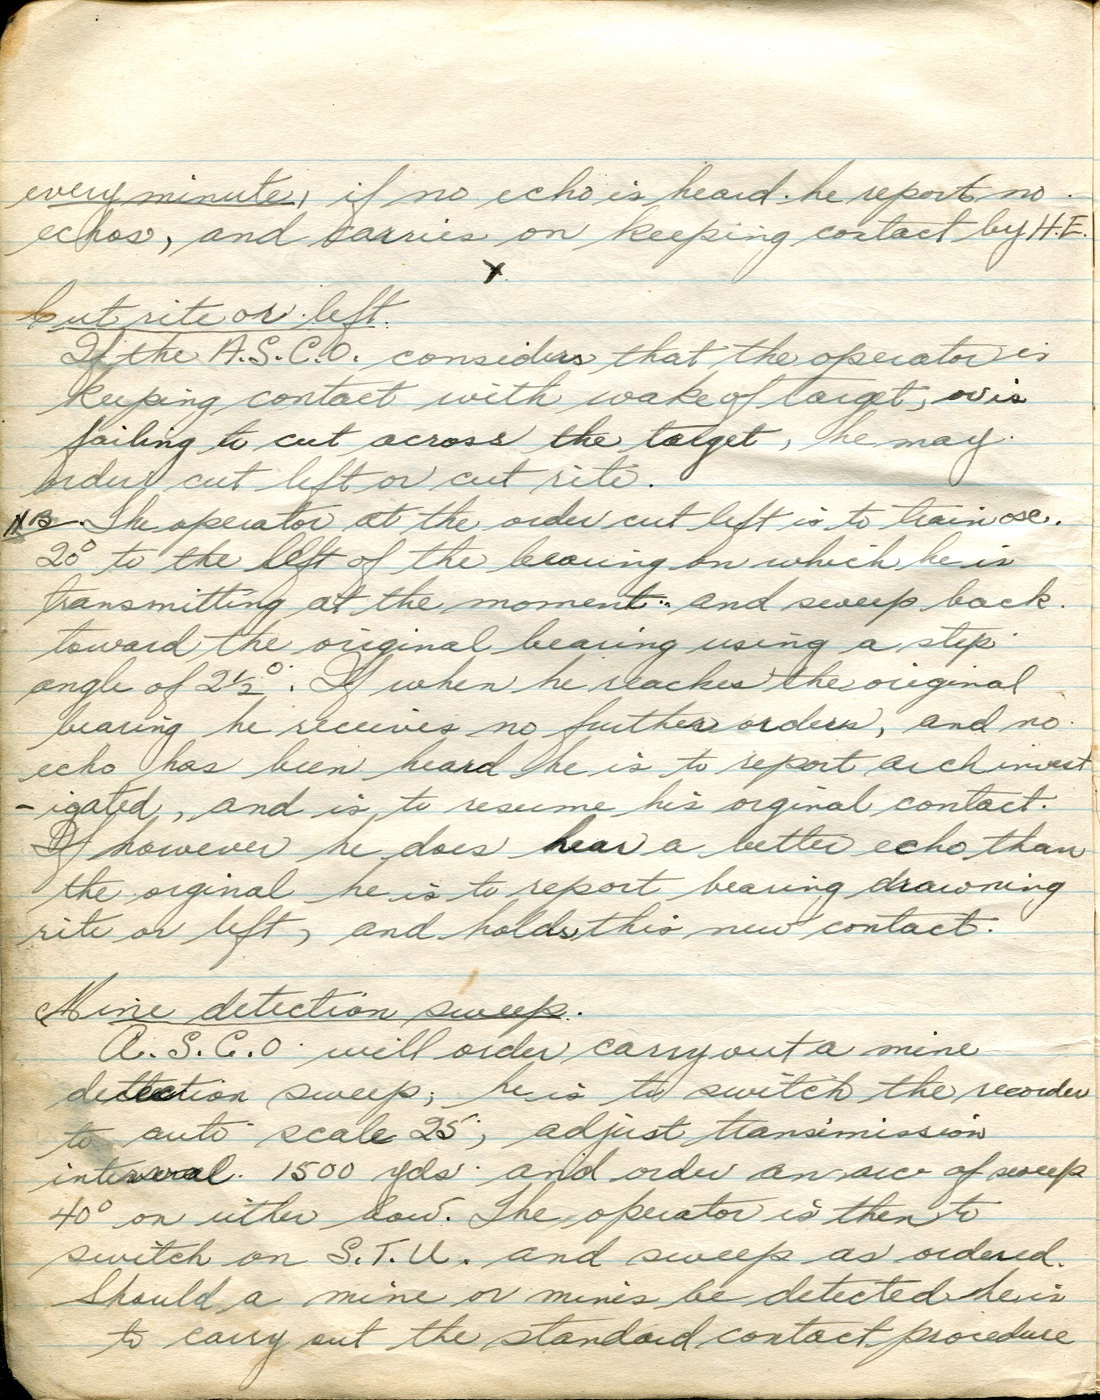 every minute, if no echo is heard. he report no
echos, and carries on keeping contact by H.E.
x
Cut rite or left.
If the A.S.C.O. considers that the operator is
keeping contact with wake of target, or is
failing to cut across the target, he may
order cut left or cut rite.
NB. The operator at the order cut left is to train ose.
20° to the left of the bearing on which he is
transmitting at the moment. and sweep back.
toward the original bearing using a step
angle of 2½°. If when he reaches the original
bearing he receives no further orders, and no
echo has been heard he is to report arch invest
-igated, and is to resume his orginal contact.
If however he does hear a better echo than
the orginal he is to report bearing drawning
rite or left, and holds this new contact.
Mine detection sweep.
A.S.C.O. will order carry out a mine
detection sweep; he is to switch the recorder
to auto scale 25, adjust transimission
interveral. 1500 yds. and order an arc of sweep
40° on either bow. The operator is then to
switch on S.T.U. and sweep as ordered.
Should a mine or mines be detected he is
to carry out the standard contact procedure